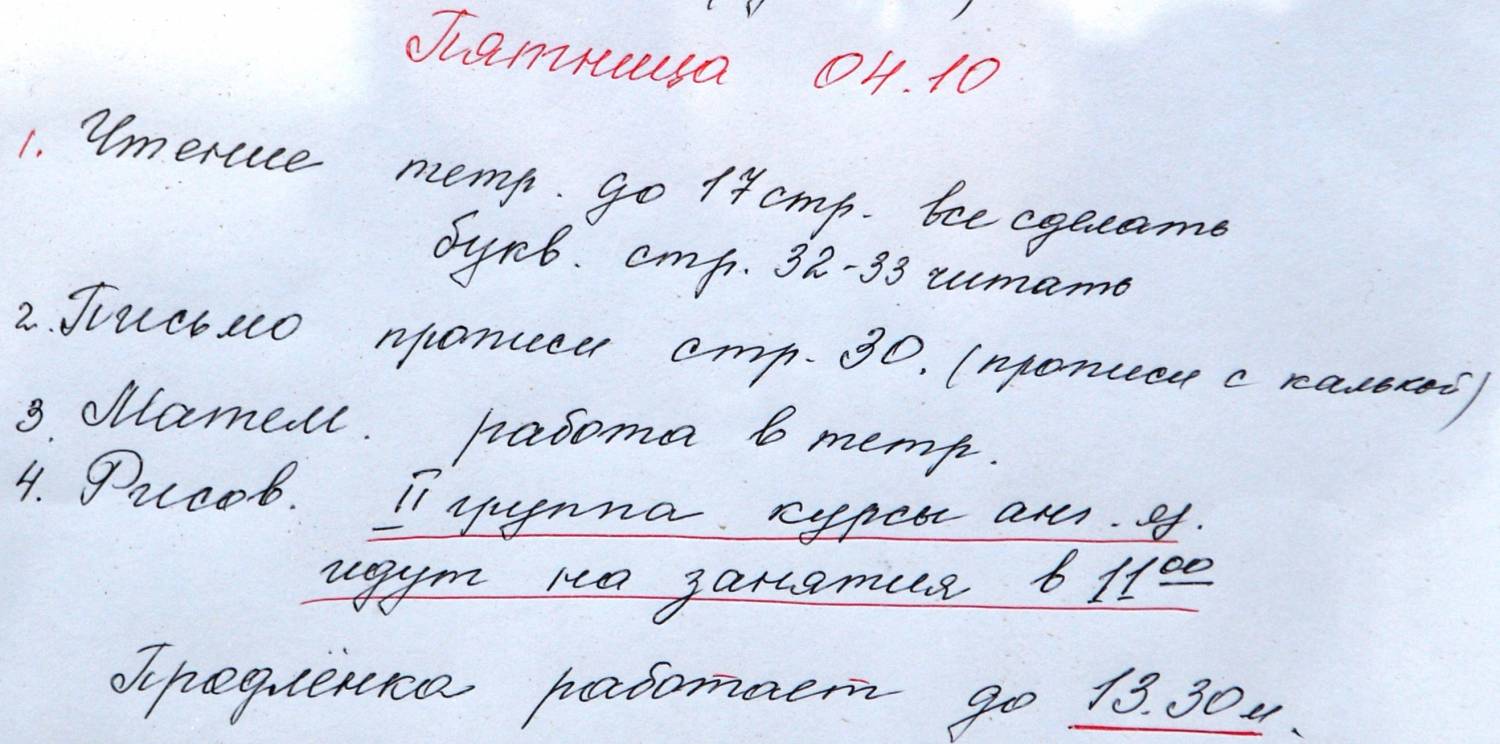 Пятница 04.10
1. Чтение тетр. до 17 стр. все сделать
букв. стр. 32-33 читать
2. Письмо прописи стр. 30. (прописи с калькой)
3. Матем. работа в тетр.
4. Рисов. II группа курсы анг. яз.
идут на занятия в 11 00
Продлёнка работает до 13.30 м.